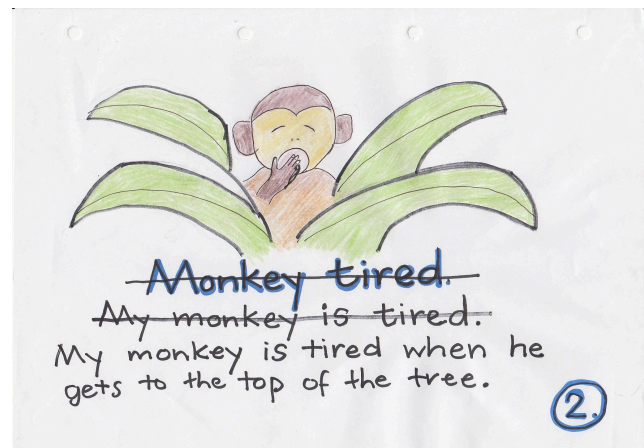 Monkey tired.
My monkey is tired.
My monkey is tired when he
gets to the top of the tree.
2.